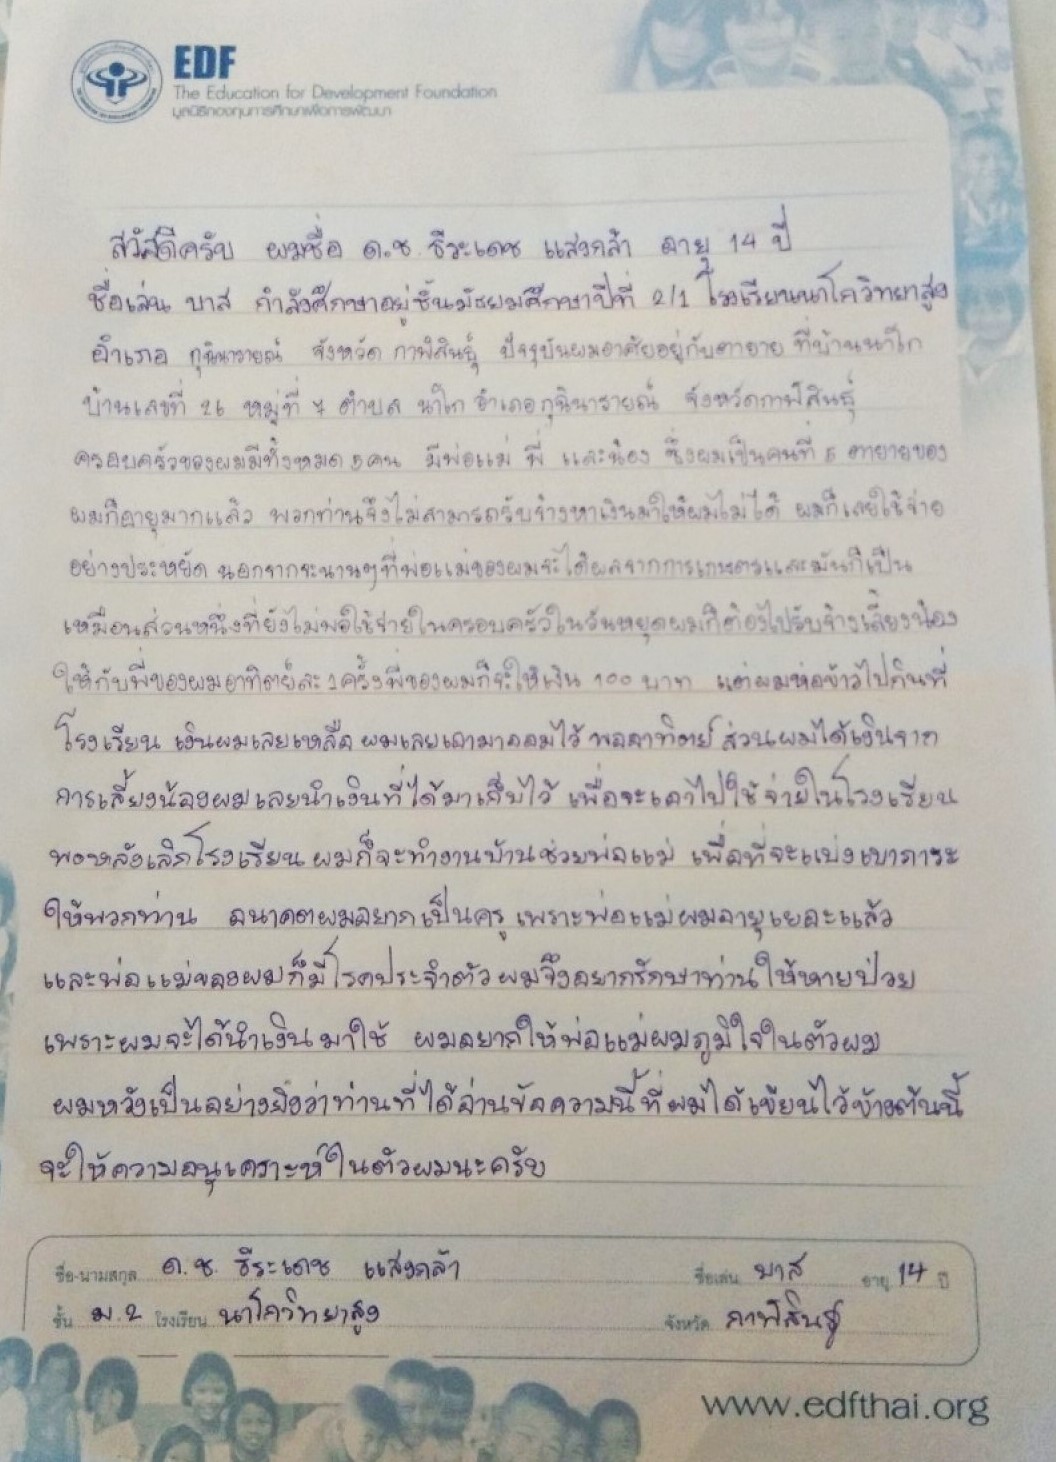 EDF
The Education for Development Foundation
มูลนิธิกองทุนการศึกษาเพื่อการพัฒนา
สวัสดีครับ ผมชื่อ ด.ช. ธีระเดช แสงกล้า อายุ 14 ปี
ชื่อเล่น บาส กำลังศึกษาอยู่ชั้นมัธยมศึกษาปีที่ 2/1 โรงเรียนนาโกวิทยาสูง
อำเภอ กุฉินารายณ์ จังหวัด กาฬสินธุ์ ปัจจุบันผมอาศัยอยู่กับตายาย ที่บ้านนาโก
บ้านเลขที่ 26 หมู่ที่ 7 ตำบล นาโก อำเภอกุฉินารายณ์ จังหวัดกาฬสินธุ์
ครอบครัวของผมมีทั้งหมด 5 คน มีพ่อแม่ พี่ และน้อง ซึ่งผมเป็นคนที่ 5 ตายายของ
ผมก็อายุมากแล้ว พวกท่านจึงไม่สามารถรับจ้างหาเงินมาให้ผมไม่ได้ ผมก็เลยใช้จ่าย
อย่างประหยัด นอกจากจะนานๆที่พ่อแม่ของผมจะได้ผลจากการเกษตรและมันก็เป็น
เหมือนส่วนหนึ่งที่ยังไม่พอใช้จ่ายในครอบครัวในวันหยุดผมก็ต้องไปรับจ้างเลี้ยงน้อง
ให้กับพี่ของผมอาทิตย์ละ 1 ครั้งพี่ของผมก็จะให้เงิน 100 บาท แต่ผมห่อข้าวไปกินที่
โรงเรียน เงินผมเลยเหลือ ผมเลยเอามาออมไว้ พออาทิตย์ ส่วนผมได้เงินจาก
การเลี้ยงน้องผมเลยนำเงินที่ได้มาเก็บไว้ เพื่อจะเอาไปใช้จ่ายในโรงเรียน
พอหลังเลิกโรงเรียน ผมก็จะทำงานบ้านช่วยพ่อแม่ เพื่อที่จะแบ่งเบาภาระ
ให้พวกท่าน อนาคตผมอยากเป็นครู เพราะพ่อแม่ผมอายุเยอะแล้ว
และพ่อแม่ของผมก็มีโรคประจำตัว ผมจึงอยากรักษาท่านให้หายป่วย
เพราะผมจะได้นำเงินมาใช้ ผมอยากให้พ่อแม่ผมภูมิใจในตัวผม
ผมหวังเป็นอย่างยิ่งว่าท่านที่ได้อ่านข้อความนี้ที่ผมได้เขียนไว้ข้างต้นนี้
จะให้ความอนุเคราะห์ในตัวผมนะครับ
ชื่อ-นามสกุล ด.ช. ธีระเดช แสงกล้า ชื่อเล่น บาส อายุ 14 ปี
ชั้น ม.2 โรงเรียน นาโกวิทยาสูง จังหวัด กาฬสินธุ์
www.edfthai.org